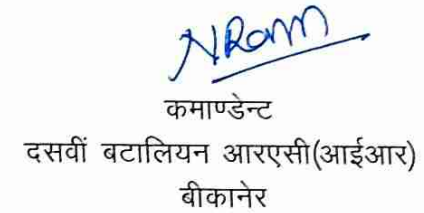 NRam
कमाण्डेन्ट
दसवीं बटालियन आरएसी(आईआर)
बीकानेर